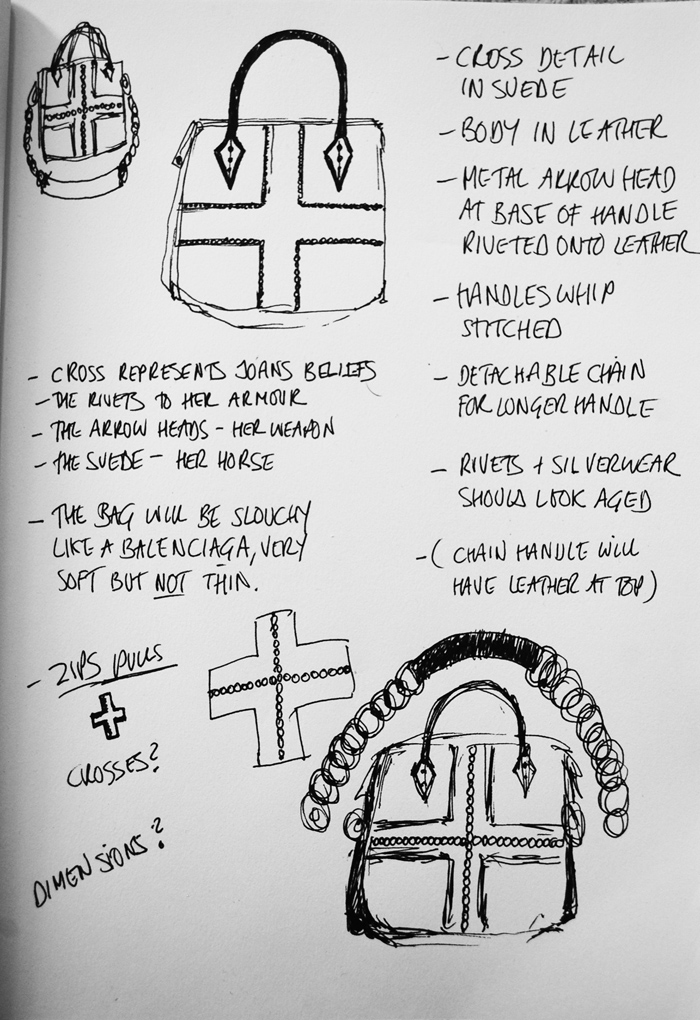 - CROSS DETAIL
IN SUEDE
- BODY IN LEATHER
- METAL ARROW HEAD
AT BASE OF HANDLE
RIVETED ONTO LEATHER
- HANDLES WHIP
STITCHED
- DETACHABLE CHAIN
FOR LONGER HANDLE
- RIVETS + SILVERWEAR
SHOULD LOOK AGED
- ( CHAIN HANDLE WILL
HAVE LEATHER AT TOP )
- CROSS REPRESENTS JOANS BELIEFS
- THE RIVETS TO HER ARMOUR
- THE ARROW HEADS - HER WEAPON
- THE SUEDE - HER HORSE
- THE BAG WILL BE SLOUCHY
LIKE A BALENCIAGA, VERY
SOFT BUT NOT THIN.
- ZIPS PULLS
CROSSES?
DIMENSIONS?